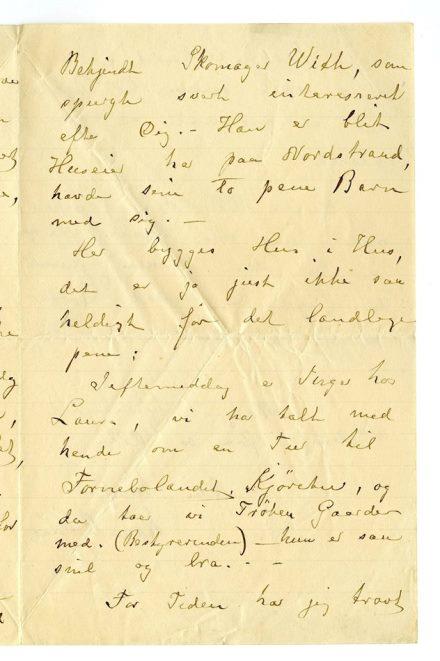 Bekjendt Skomager With, som
spurgte svært interesseret
efter Dig. – Han er blit
Huseier her paa Nordstrand,
havde sine to pene Barn
med sig. –
Her bygges Hus i Hus,
det er jo just ikke saa
heldigt for det landlige
pene;
Ieftermiddag er hos
Laura, vi har talt med
hende om en Tur til
Fornebolandet, Kjøretur, og
da tar vi Frøken Gaarder
med. (Bestyrerinden) – hun er saa
snil og bra. –
For Tiden har jeg travlt